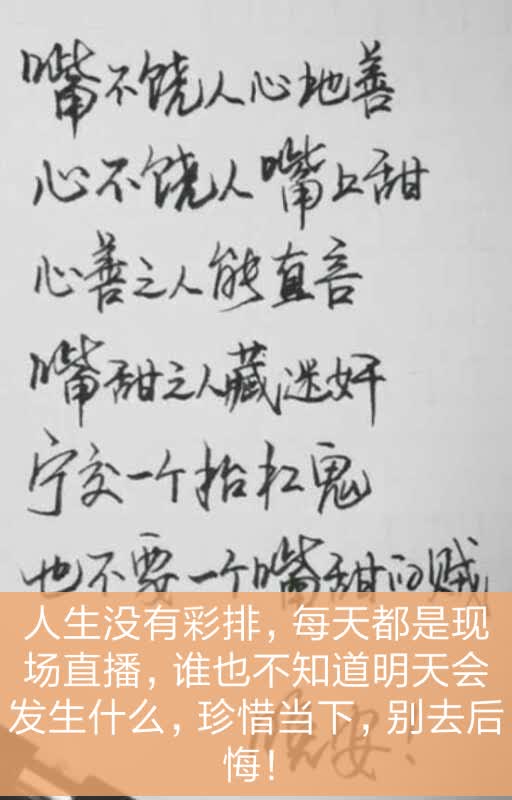 嘴不饶人心地善
心不饶人嘴上甜
心善之人能直言
嘴甜之人藏迷奸
宁交一个抬杠鬼
也不要一个嘴甜的贼
人生没有彩排，每天都是现
场直播，谁也不知道明天会
发生什么，珍惜当下，别去后
悔！
晚安！